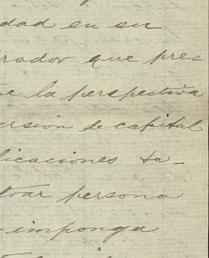 dad en su
rador que pre-
e la perspectiva
ersión de capital
licaciones ta-
trar persona
imponga